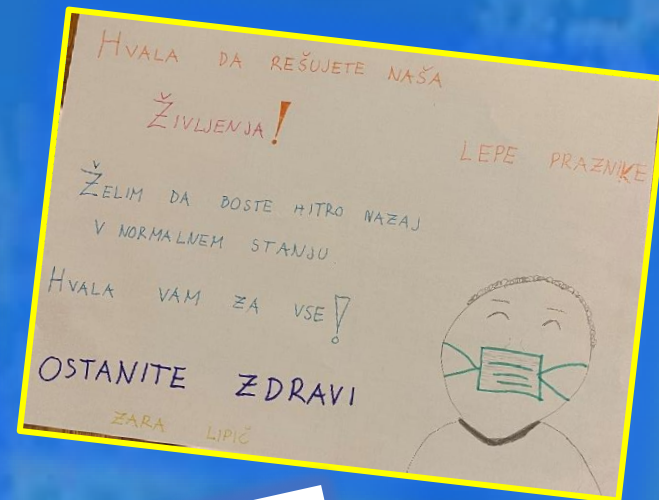 HVALA DA REŠUJETE NAŠA
ŽIVLJENJA!
LEPE PRAZNIKE
ŽELIM DA BOSTE HITRO NAZAJ
V NORMALNEM STANJU
HVALA VAM ZA VSE!
OSTANITE ZDRAVI
ZARA LIPIČ